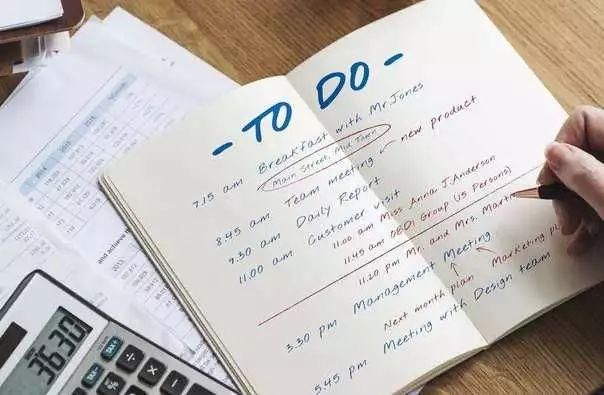 - TO DO -
7.15 am Breakfast with Mr.Jones
Main Street, Mid Town
8.45 am Team meeting new product
9.30 am Daily Report
11.00 am Customer visit
11.00 am Miss Anna J.Anderson
11.45 am OBDI Group (15 Persons)
11.20 pm Mr. and Mrs.
3.30 pm Management Meeting
Next month plan Marketing
5.45 pm Meeting with Design team
3630
TAX-
TAX+
÷
%
×